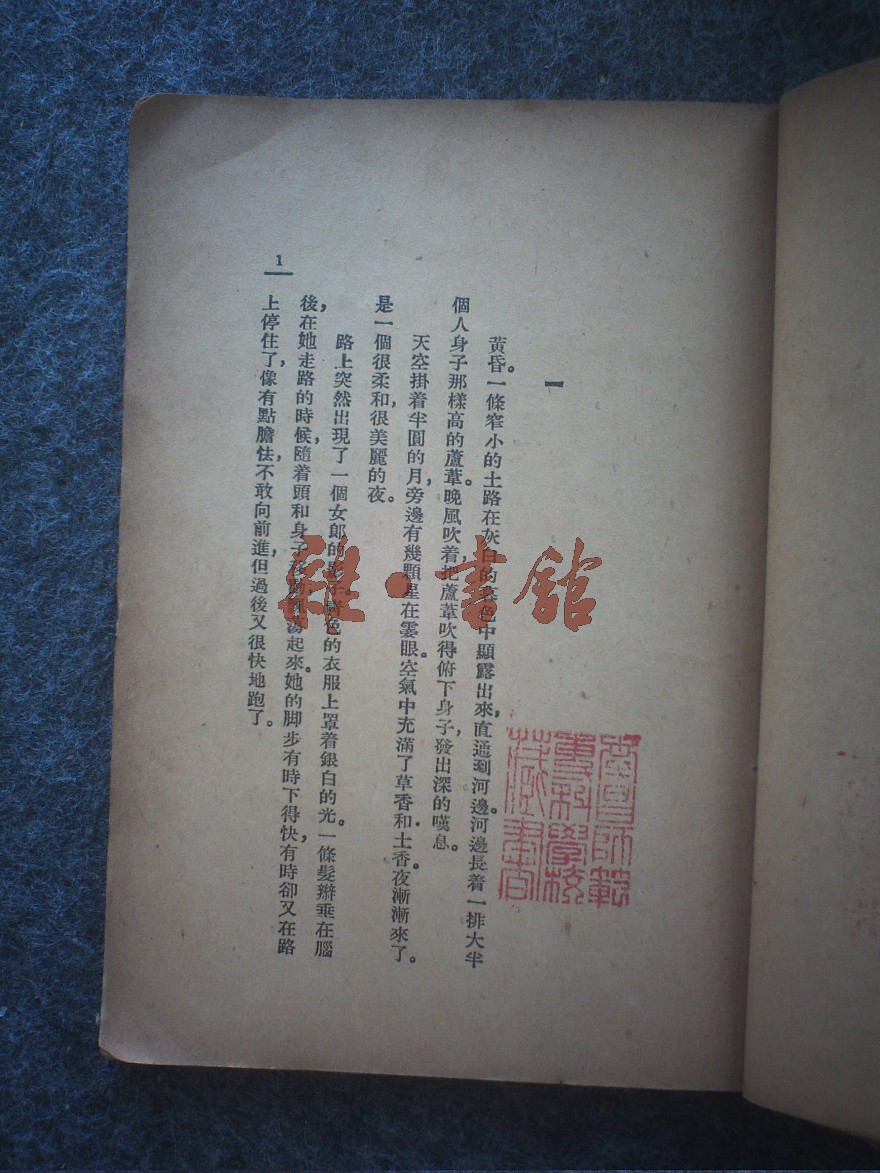 一
黃昏。一條窄小的土路在灰白的暮色中顯露出來,直通到河邊。河邊長着一排大半
個人身子那樣高的蘆葦。晚風吹着,把蘆葦吹得俯下身子,發出深的嘆息。
天空掛着半圓的月,旁邊有幾顆星在霎眼。空氣中充滿了草香和土香。夜漸漸來了。
是一個很柔和,很美麗的夜。
路上突然出現了一個女郎的影子。青色的衣服上罩着銀白的光。一條髮辮垂在腦
後,在她走路的時候,隨着頭和身子蕩起來。她的脚步有時下得快,有時卻又在路
上停住了,像有點膽怯,不敢向前進,但過後又很快地跑了。
1
雜·書館
昌師範
專科學校
藏書